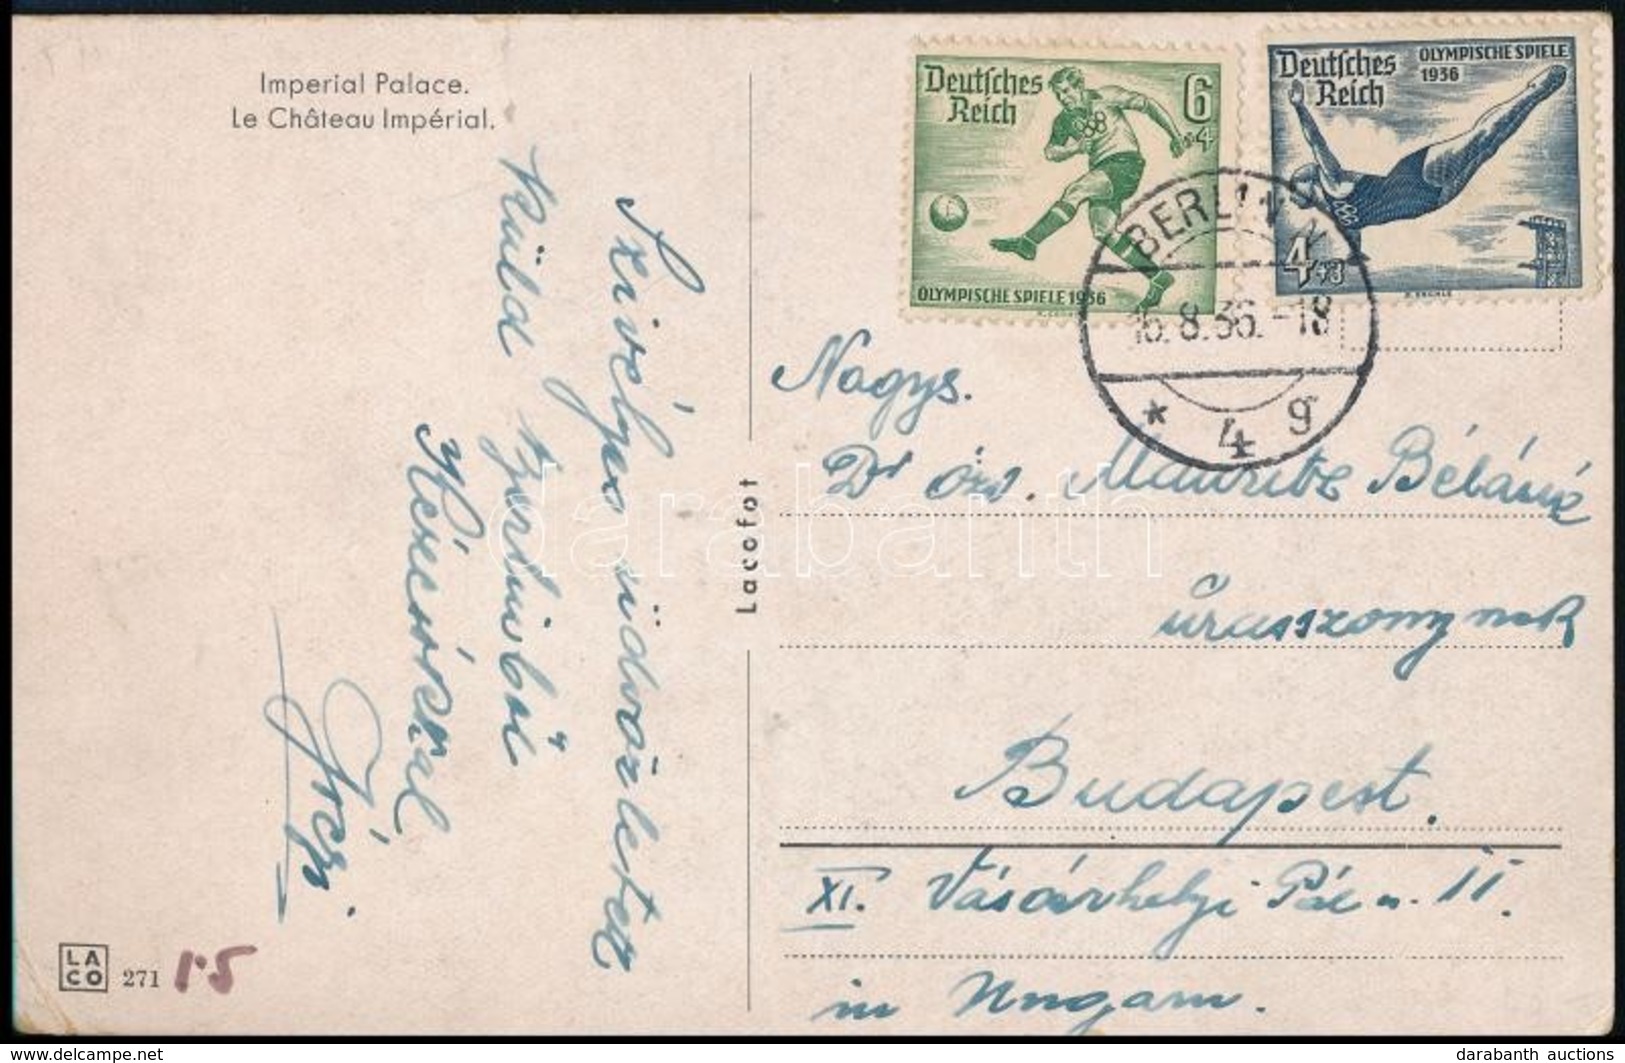 Imperial Palace.
Le Château Impérial.
Szivélyes üdvözletét
Küld Berlinből
Deutsches
Reich
6
+4
OLYMPISCHE SPIELE 1936
Deutsches
Reich
OLYMPISCHE SPIELE
1936
4+3
BERLIN
16.8.36.-18
* 4 g
Nagys.
Dr Örs. Mauritz Béláné
úrasszonynak
Budapest.
XI. Vásárhelyi Pál u. 11.
in Ungarn.
Laccfot
LA
CO
271
1.5
darabanth
darabanth auctions
delcampe.net